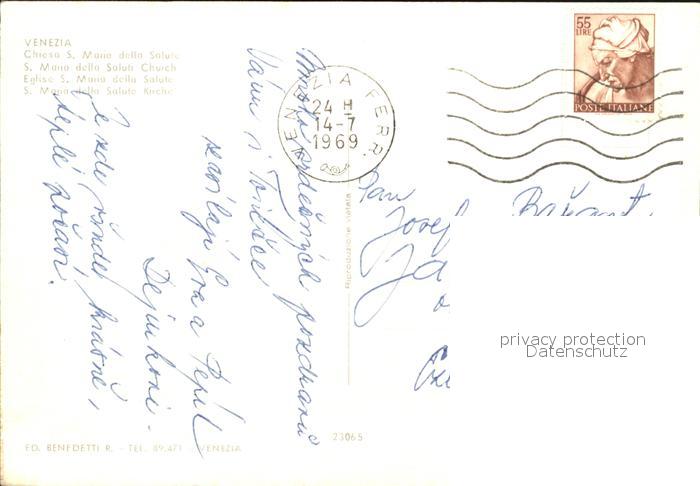 VENEZIA
Chiesa S. Maria della Salute
S. Maria della Saluti Church
Eglise S. Maria della Salute
S. Maria della Salute Kirche
55
LIRE
POSTE ITALIANE
VENEZIA FERR.
24 H
14-7
1969
Mnoho srdečných pozdravů
Vám i
zasílají Eva a Pepík
Je zde všude krásně,
teplé počasí.
Pan
Josef
Riproduzione vietata
privacy protection
Datenschutz
23065
ED. BENEDETTI R. - TEL. 89.471 - VENEZIA